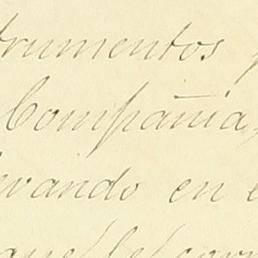 trumentos p
Compañia,
evando en e